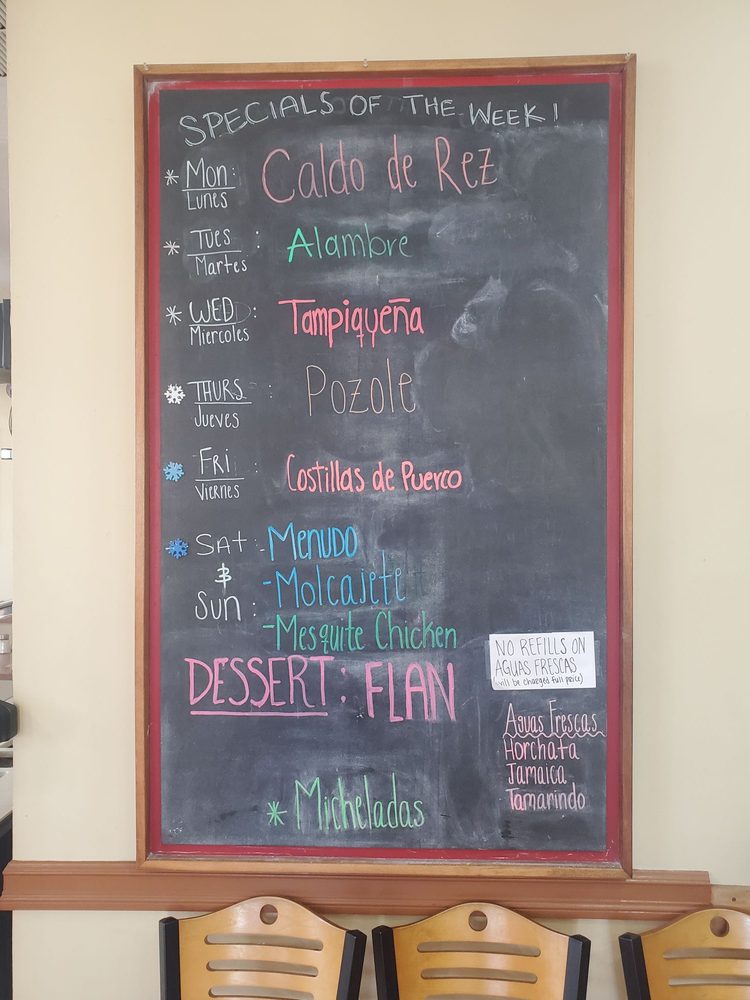 SPECIALS OF THE WEEK!
* Mon: Caldo de Rez
Lunes
* TUES : Alambre
Martes
* WED : Tampiqueña
Miercoles
THURS : Pozole
Jueves
Fri : Costillas de Puerco
Viernes
SAT - MENUDO
& - Molcajete
Sun : - Mesquite Chicken
DESSERT: FLAN
NO REFILLS ON
AGUAS FRESCAS
(will be charged full price)
Aguas Frescas
Horchata
Jamaica
Tamarindo
* Micheladas